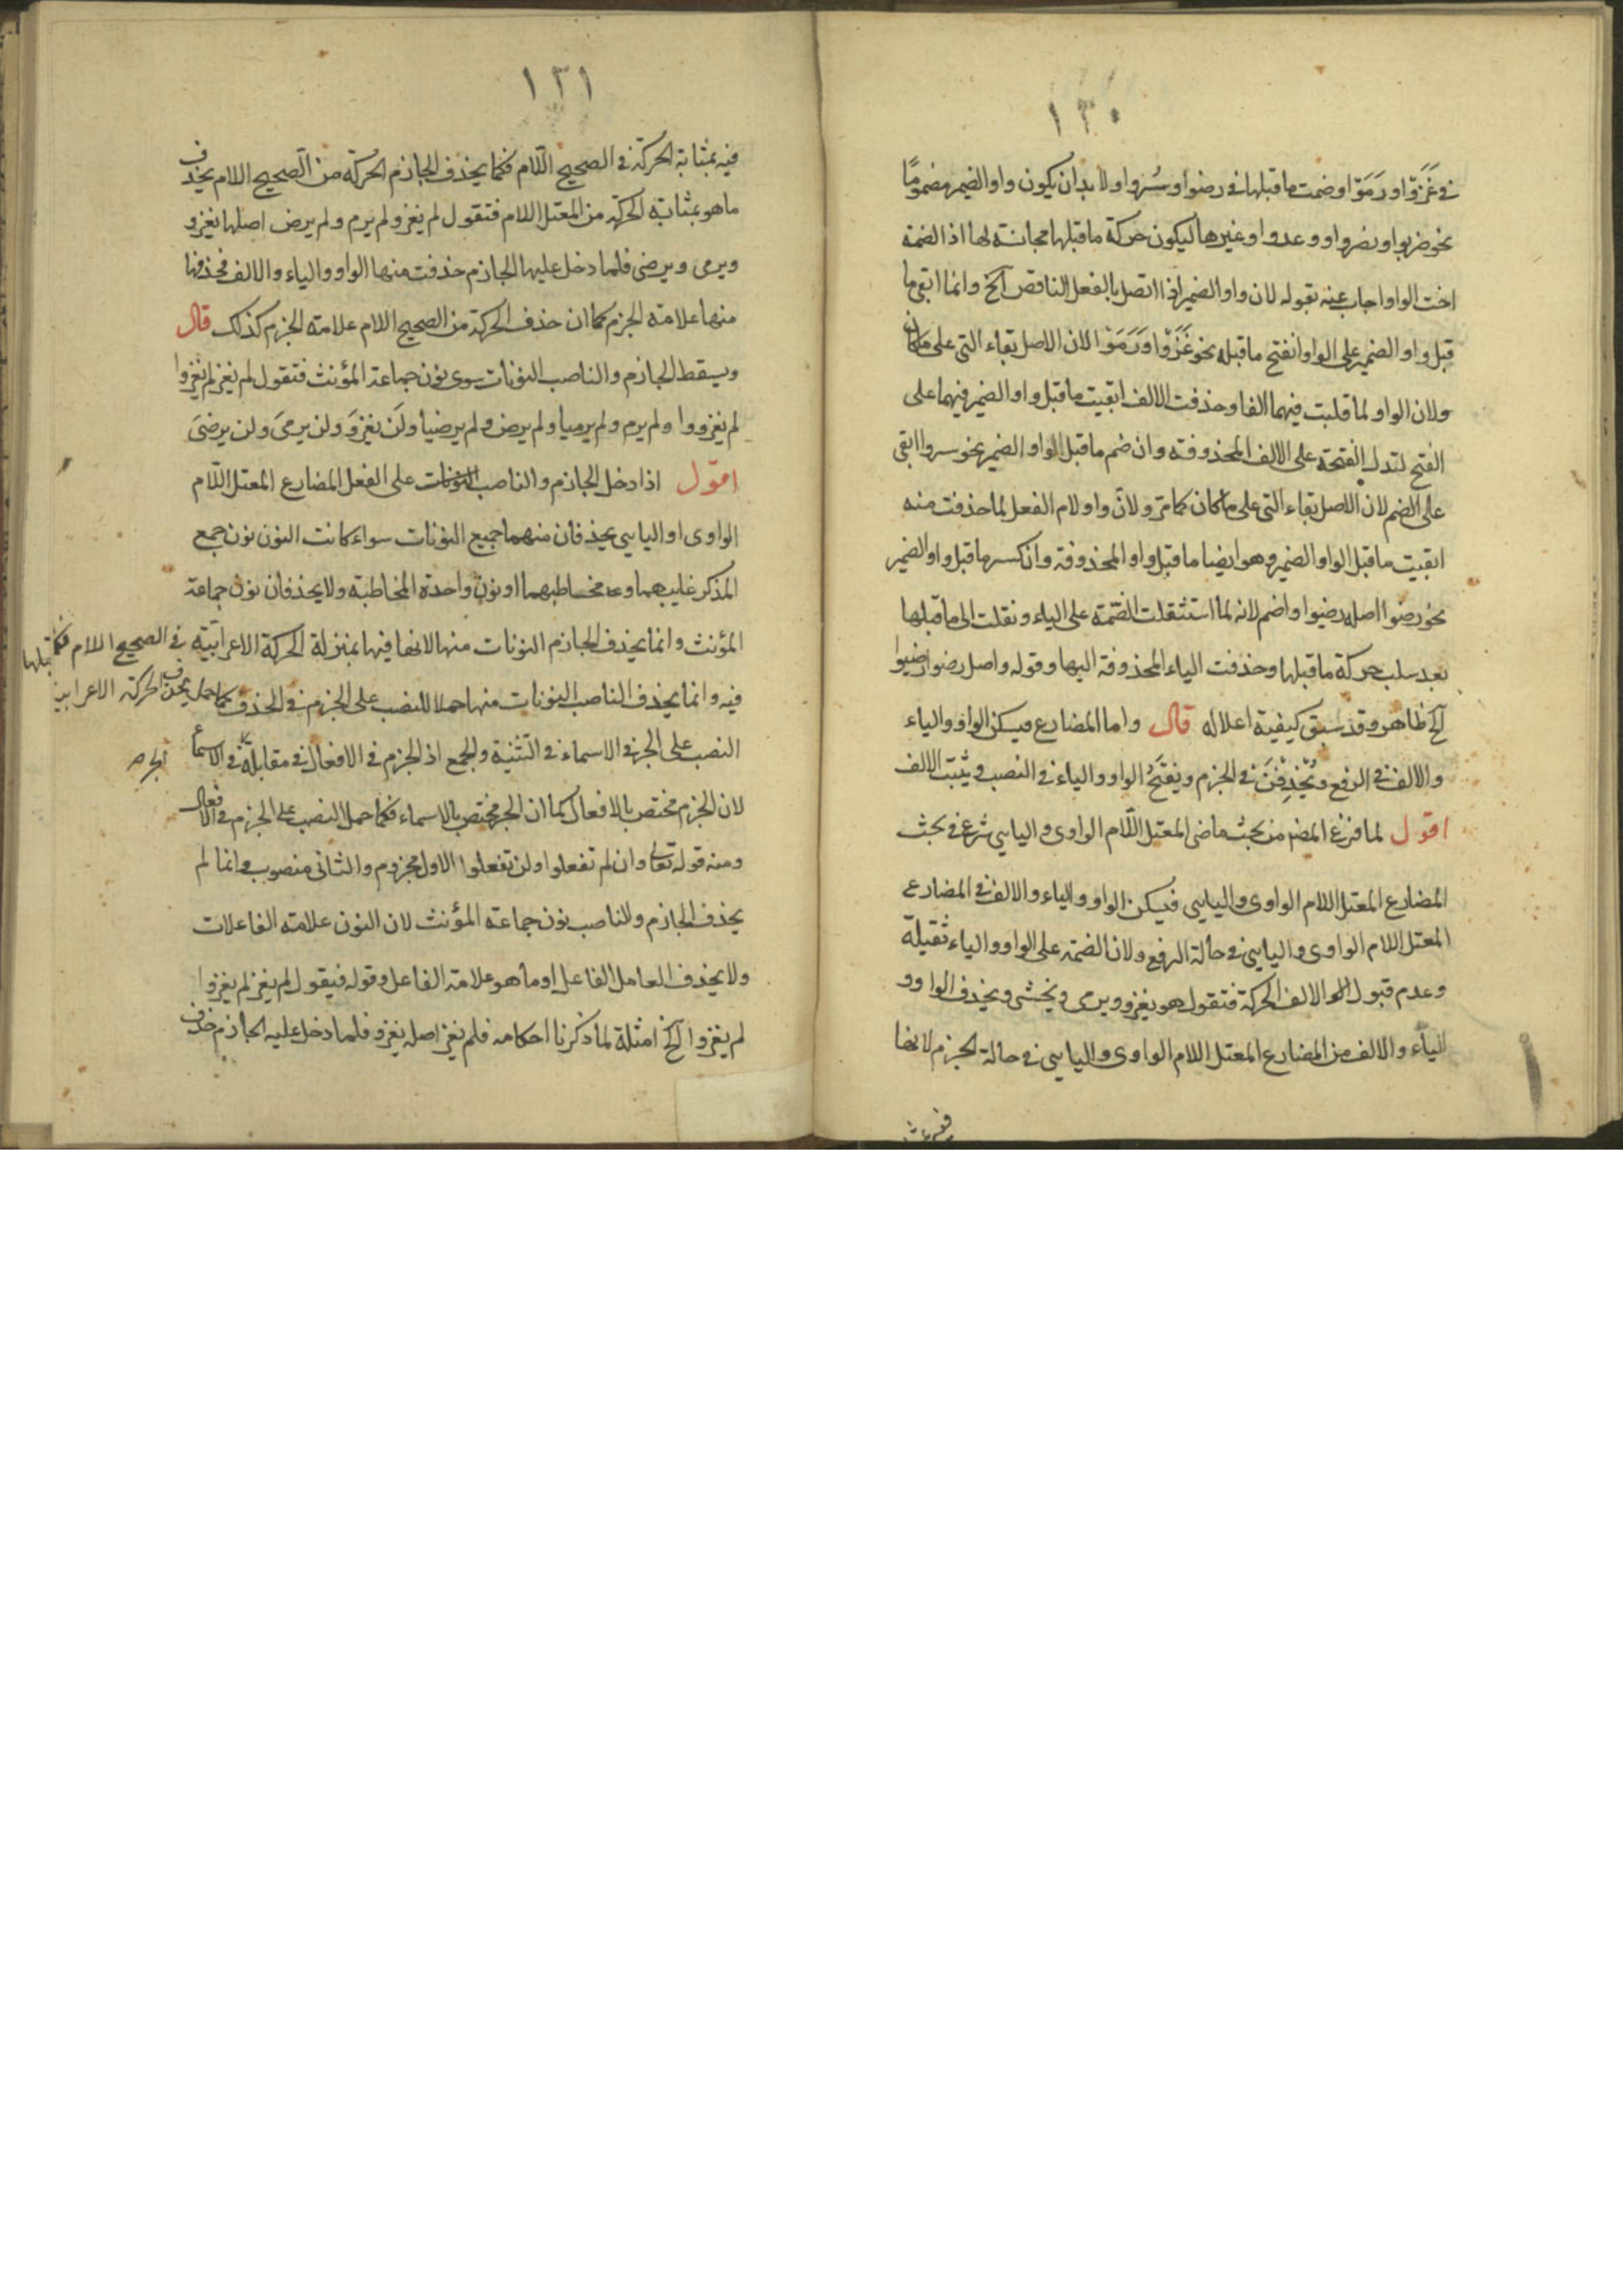 ١٣٠
في غَزَوْا ورَمَوْا وضمت ما قبلها في رضوا وسُروا ولا بد ان يكون واو الضمير مضمومًا
نحو ضربوا ونصروا ووعدوا وغيرها ليكون حركة ما قبلها مجانسة لها اذ الضمة
اخت الواو اجاب عنه بقوله لان واو الضمير اذا اتصل بالفعل الناقص الخ وانما ابقى ما
قبل واو الضمير على الواو انفتح ما قبله نحو غَزَوْا ورَمَوْا لان الاصل بقاء الشي على ما كان
ولان الواو لما قلبت فيهما الفا وحذفت الالف ابقيت ما قبل واو الضمير فيهما على
الفتح لتدل الفتحة على الالف المحذوفة وان ضم ما قبل الواو الضمير نحو سروا ابقى
على الضم لان الاصل بقاء الشي على ما كان كما مر ولان واو لام الفعل لما حذفت منه
ابقيت ما قبل الواو الضمير وهو ايضا ما قبل واو المحذوفة وان كسر ما قبل واو الضمير
نحو رضوا اصله رضيوا واضم لانه لما استثقلت الضمة على الياء ونقلت الى ما قبلها
بعد سلب حركة ما قبلها وحذفت الياء المحذوفة اليها وقوله واصل رضوا رضيوا
الخ ظاهر وقد سبق كيفية اعلاله قال واما المضارع فيسكن الواو والياء
والالف في الرفع ويُحْذِفْنَ في الجزم ويفتَحُ الواو والياء في النصب ويثبت الالف
اقول لما فرغ المص من بحث ماضى المعتل اللام الواوى واليايى شرع في بحث
المضارع المعتل اللام الواوى واليايى فيسكن الواو والياء والالف في المضارع
المعتل اللام الواوى واليايى في حالة الرفع ولان الضمة على الواو والياء ثقيلة
وعدم قبول الالف الحركة فتقول هو يغزو ويرمى ويخشى ويحذف الواو و
الياء والالف من المضارع المعتل اللام الواوى واليايى في حالة الجزم لانها
١٣١
فيه بمثابة الحركة في الصحيح اللام فكما يحذف الجازم الحركة من الصحيح اللام يحذف
ما هو بمثابة الحركة من المعتل اللام فتقول لم يغز ولم يرم ولم يرض اصلها يغزو
ويرمى ويرضى فلما دخل عليها الجازم حذفت منها الواو والياء والالف فحذفها
منها علامة الجزم كما ان حذف الحركة من الصحيح اللام علامة الجزم كذلك قال
ويسقط الجازم والناصب النونات سوى نون جماعة المؤنث فتقول لم يغز لم يغزوا
لم يغزوا ولم يرم ولم يرميا ولم يرض ولم يرضيا ولَن يغزوَ ولن يرمىَ ولن يرضىَ
اقول اذا دخل الجازم والناصب النونات على الفعل المضارع المعتل اللام
الواوى او اليايى يحذفان منهما جميع النونات سواء كانت النون نون جمع
المذكر غليبهما و مخاطبهما او نون واحدة المخاطبة ولا يحذفان نون جماعة
المؤنث وانما يحذف الجازم النونات منها لانها فيها بمنزلة الحركة الاعرابية في الصحيح اللام فكما
فيه وانما يحذف الناصب النونات منها حملا للنصب على الجزم في الحذف كما حمل يحذف الحركة الاعرابية
النصب على الجر في الاسماء في التثنية والجمع اذ الجزم في الافعال في مقابلة في الاسماء الجر صح
لان الجزم مختص بالافعال كما ان الجر مختص بالاسماء فكما حمل النصب على الجزم في الافعال
ومنه قوله تعالى وان لم تفعلوا ولن تفعلوا الاول مجزوم والثانى منصوب وانما لم
يحذف الجازم والناصب نون جماعة المؤنث لان النون علامة الفاعلات
ولا يحذف العامل الفاعل او ما هو علامة الفاعل وقوله فيقول لم يغز لم يغزوا
لم يغزوا الخ امثلة لما ذكرنا احكامه فلم يغز اصله يغزو فلما دخل عليه الجازم حذف